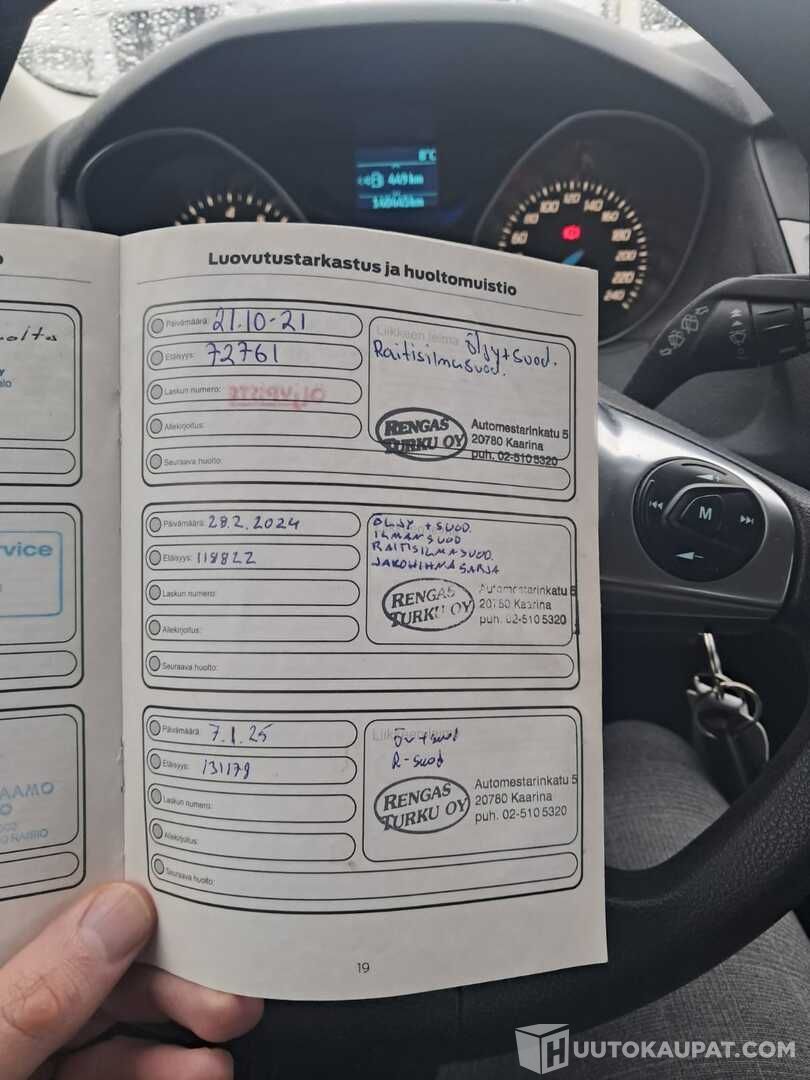 8°C
449 km
Luovutustarkastus ja huoltomuistio
Päivämäärä: 21.10-21
Etäisyys: 72761
Laskun numero:
Allekirjoitus:
Seuraava huolto:
Liikkeen leima Öljy+suod.
Raitisilmasuod.
RENGAS
TURKU OY
Automestarinkatu 5
20780 Kaarina
puh. 02-510 5320
Päivämäärä: 28.2.2024
Etäisyys: 118822
Laskun numero:
Allekirjoitus:
Seuraava huolto:
ÖLJY + SUOD.
ILMANSUOD
RAITISILMASUOD.
JAKOHIHNASARJA
RENGAS
TURKU OY
Automestarinkatu 5
20780 Kaarina
puh. 02-510 5320
Päivämäärä: 7.1.25
Etäisyys: 131179
Laskun numero:
Allekirjoitus:
Seuraava huolto:
R-suod
RENGAS
TURKU OY
Automestarinkatu 5
20780 Kaarina
puh. 02-510 5320
19
60
80
100
120
140
160
180
200
220
240
M
HUUTOKAUPAT.COM